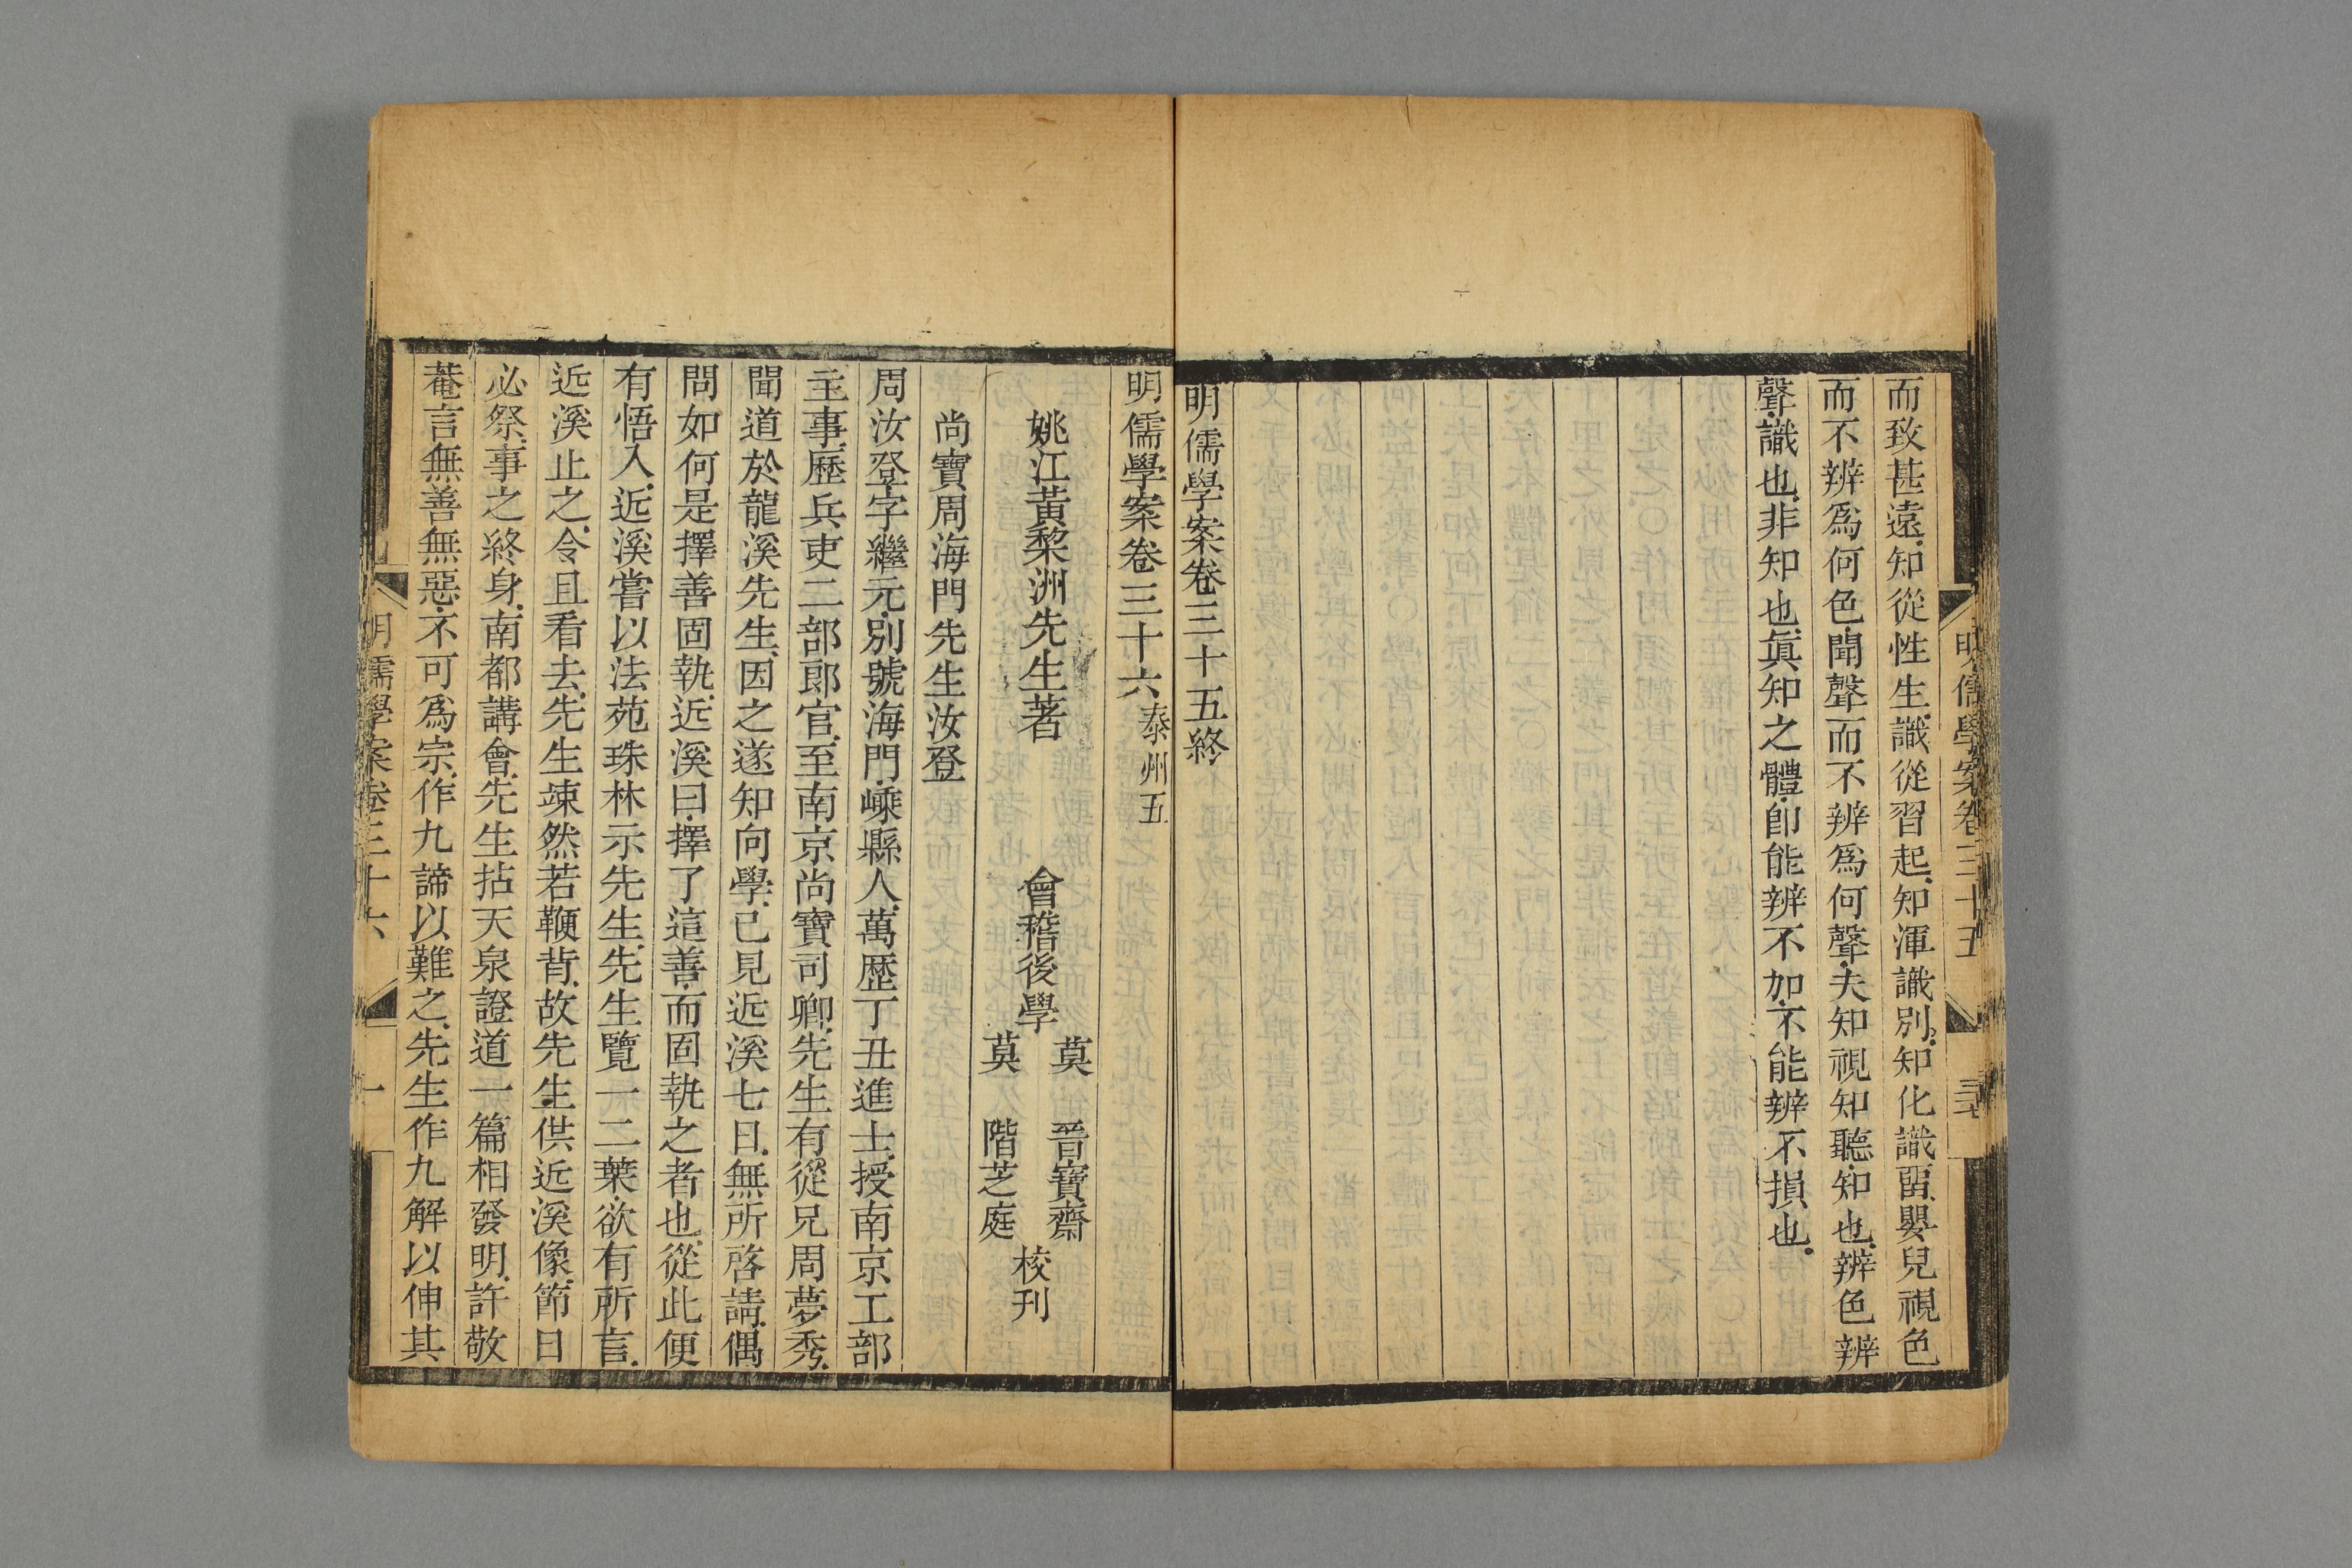 明儒學案卷三十五
而致甚遠知從性生識從習起知渾識別知化識留嬰兒視色
而不辨爲何色聞聲而不辨爲何聲夫知視知聽知也辨色辨
聲識也非知也眞知之體卽能辨不加不能辨不損也
明儒學案卷三十五終
明儒學案卷三十六 泰州五
姚江黃棃洲先生著 會稽後學 莫晉寶齋 莫階芝庭 校刊
尚寶周海門先生汝登
周汝登字繼元別號海門嵊縣人萬歷丁丑進士授南京工部
主事歷兵吏二部郎官至南京尚寶司卿先生有從兄周夢秀
聞道於龍溪先生因之遂知向學已見近溪七日無所啓請偶
問如何是擇善固執近溪曰擇了這善而固執之者也從此便
有悟入近溪嘗以法苑珠林示先生先生覽一二葉欲有所言
近溪止之令且看去先生竦然若鞭背故先生供近溪像節日
必祭事之終身南都講會先生拈天泉證道一篇相發明許敬
菴言無善無惡不可爲宗作九諦以難之先生作九解以伸其
明儒學案卷三十六
一